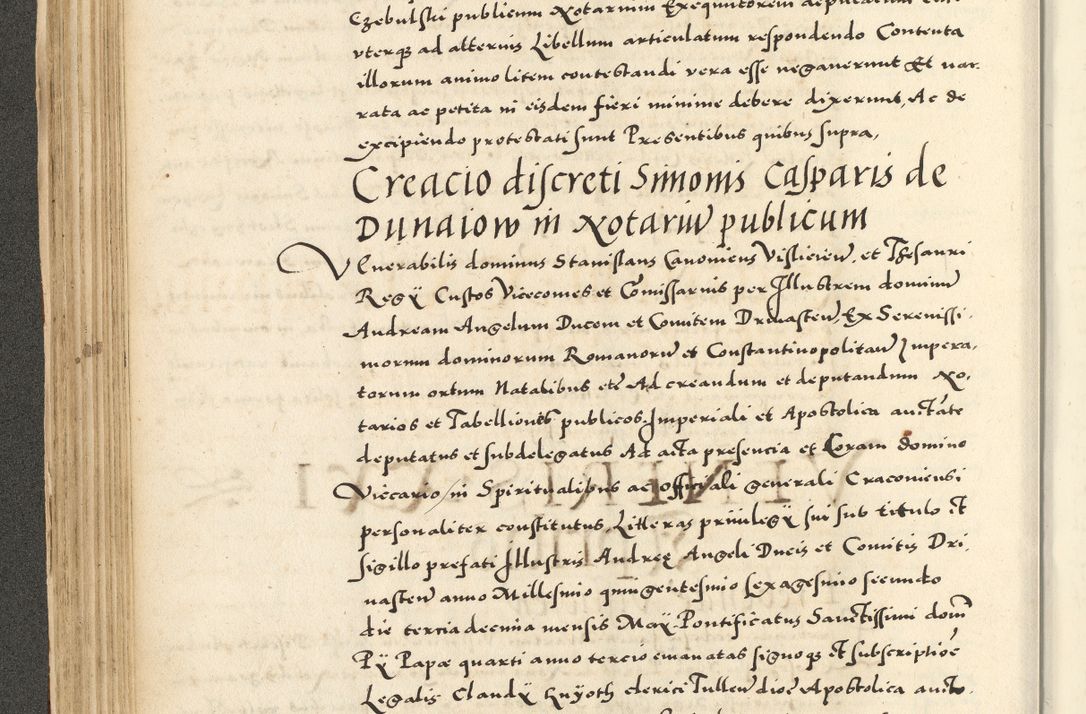 Czebulski publicum Notarium Exequutorem deputatum
vterq3 ad alterius Libellum articulatum respondendo Contenta
illorum animo litem contestandi vera esse negauerunt Et nar-
rata ac petita in eisdem fieri minime debere dixerunt, Ac de
excipiendo protestati sunt Presentibus quibus supra,
Creacio discreti Simonis Casparis de
Dunaiow in Notariu publicum
Venerabilis dominus Stanislaus Canonicus Vislicien, et Thesauri
Regÿ Custos Vicecomes et Comissarius per Illustrem dominu
Andream Angelum Ducem et Comitem Driuasten, Ex Serenissi-
morum dominorum Romanoru et Constantinopolitan Impera-
torum ortum Natalibus etc Ad creandum et deputandum No-
tarios et Tabelliones publicos Imperiali et Apostolica auctate
deputatus et subdelegatus Ad acta presencia et Coram domino
Vicecario in Spiritualibus ac officiali generali Cracouiensi
personaliter constitutus, Litteras priuilegÿ sui sub titulo et
sigillo prefati Illustris Andreę Angeli Ducis et Comitis Dri-
uasten anno Millesimo quingentesimo sexagesimo secundo
die tercia decima mensis Maÿ Pontificatus Sanctissimi dom
Pÿ Papae quarti anno tercio emanatas signoq3 et subscriptioe
Legalis Claudÿ Huÿoth clerici Tullen dioc Apostolica aucto-